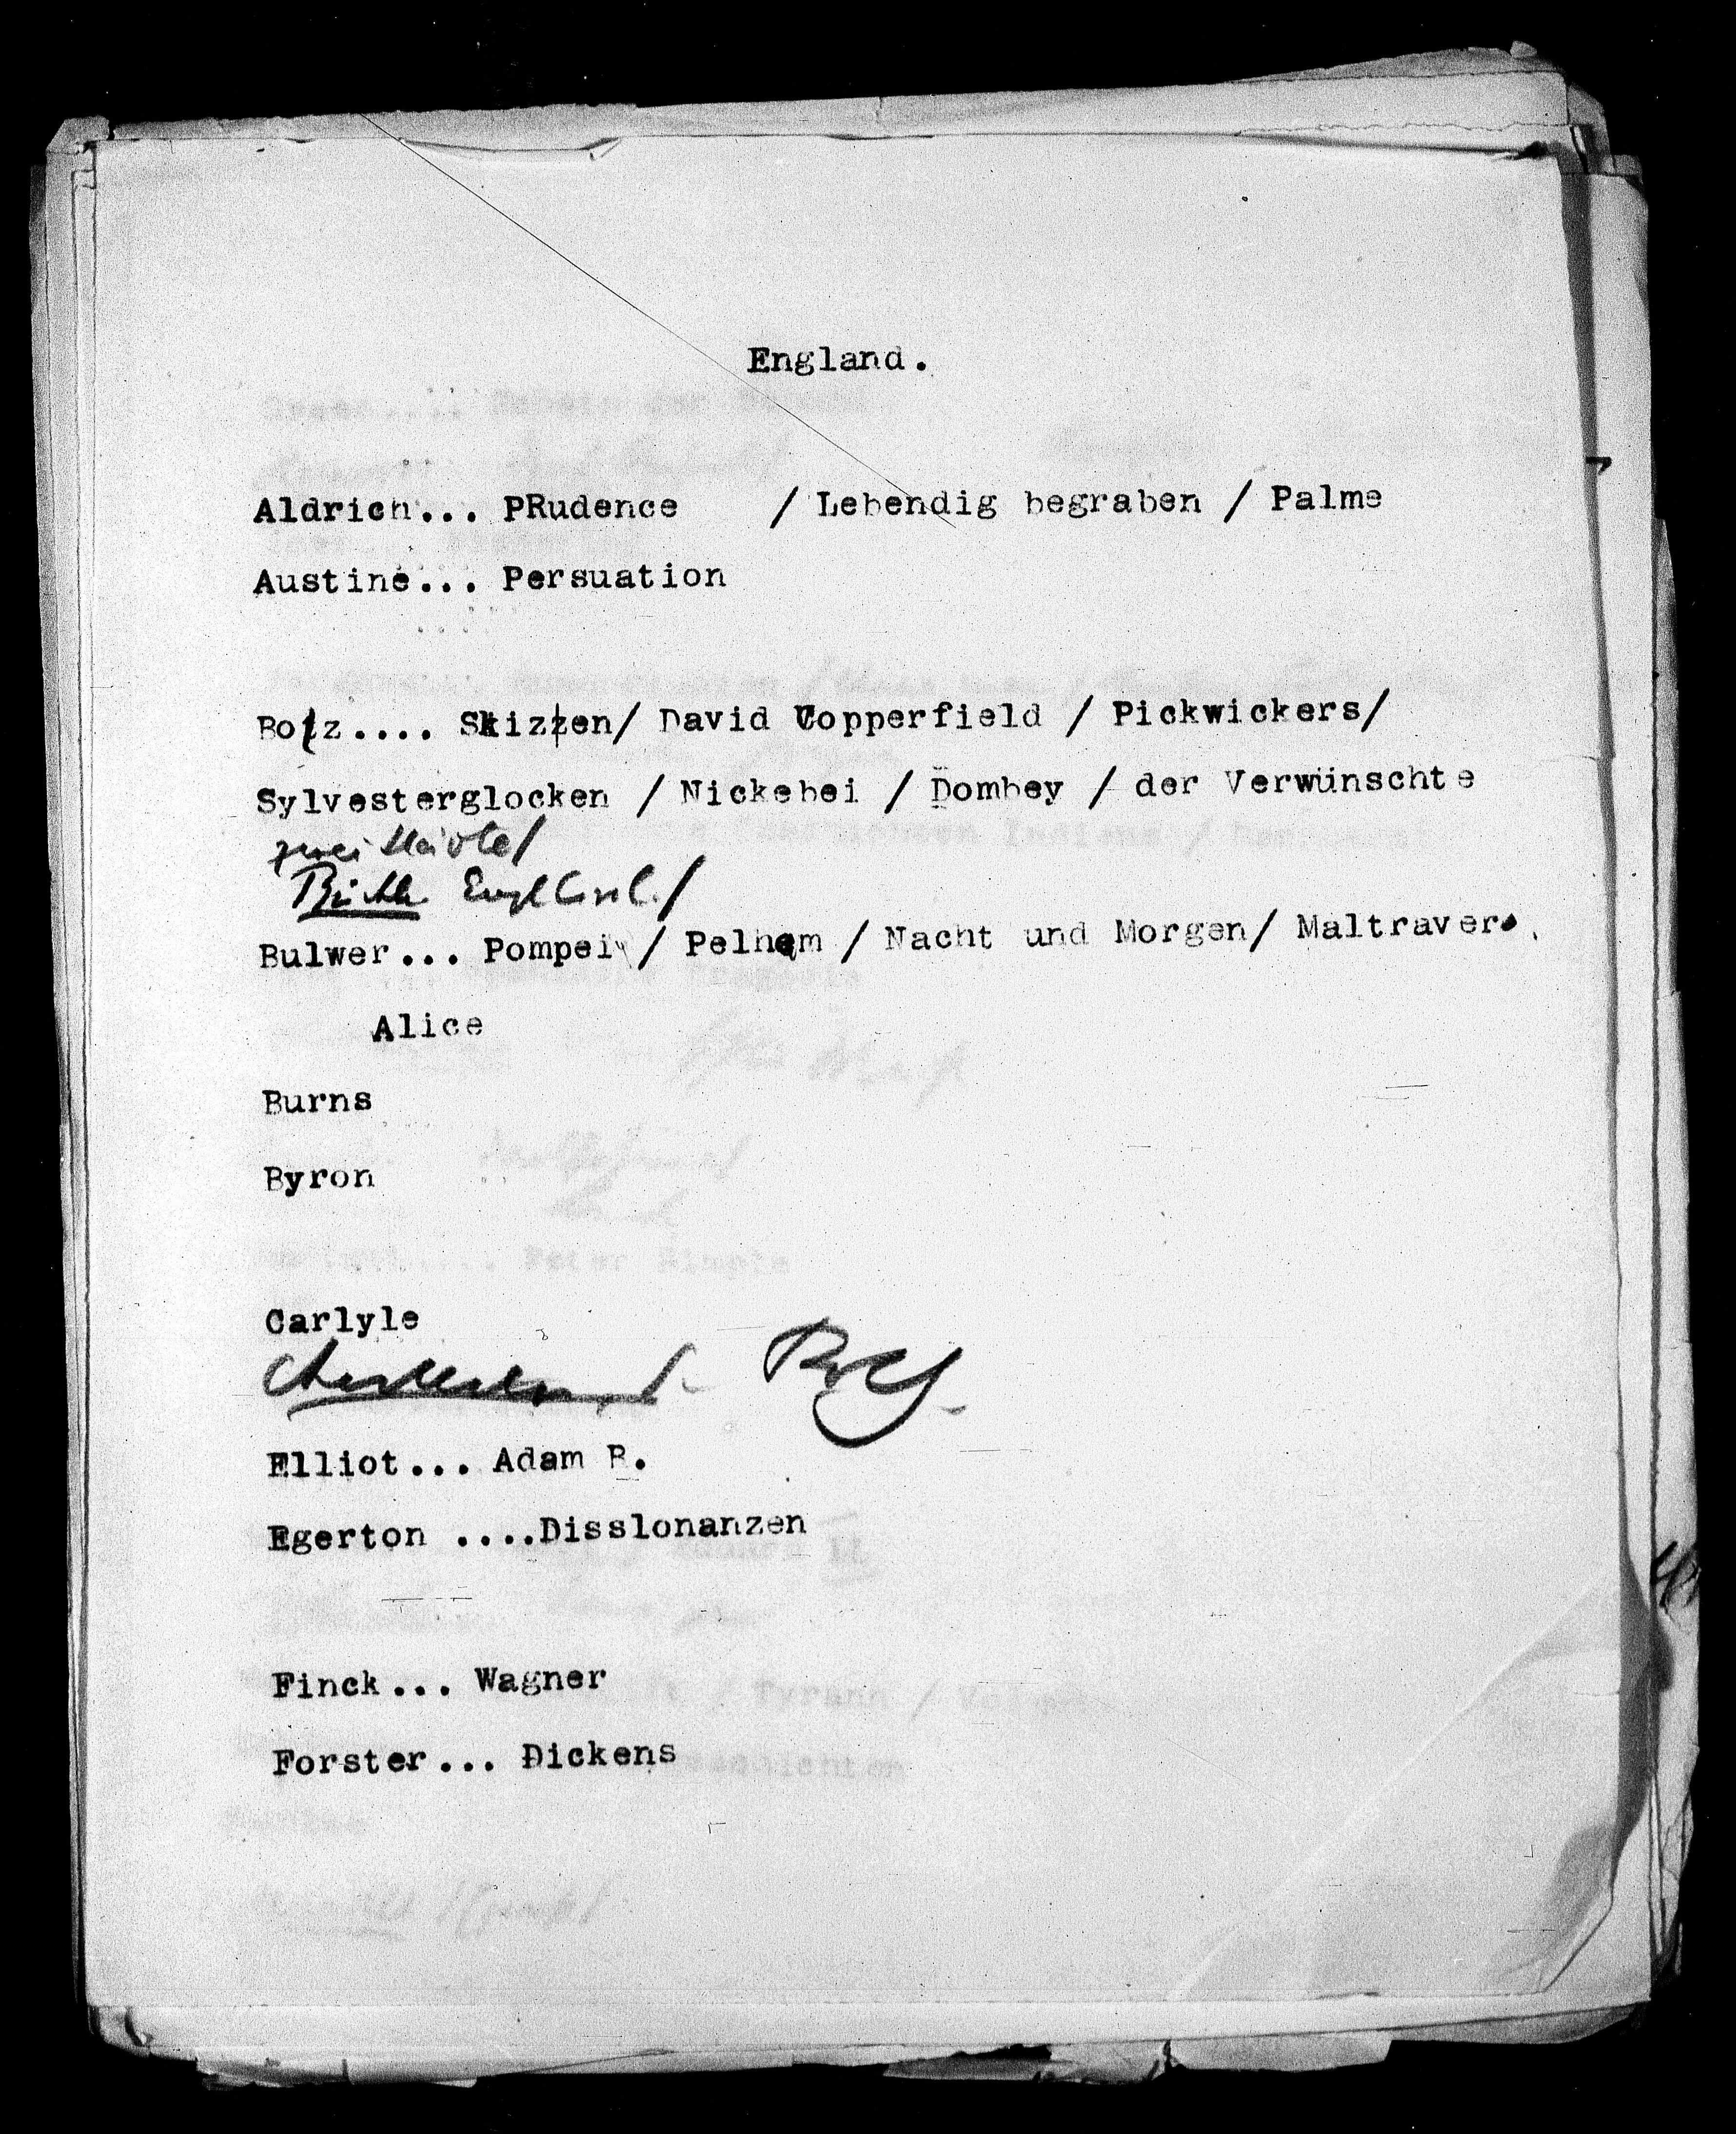 England.
Aldrich... PRudence / Lebendig begraben / Palme
Austine... Persuation
Boz.... Skizzen/ David Copperfield / Pickwickers/
Sylvesterglocken / Nickebei / Dombey / der Verwünschte
zwei Städte/
Buckle Engl
Bulwer... Pompei / Pelham / Nacht und Morgen/ Maltravers,
Alice
Burns
Byron
Carlyle
Elliot... Adam B.
Egerton ....Disslonanzen
Finck... Wagner
Forster... Dickens